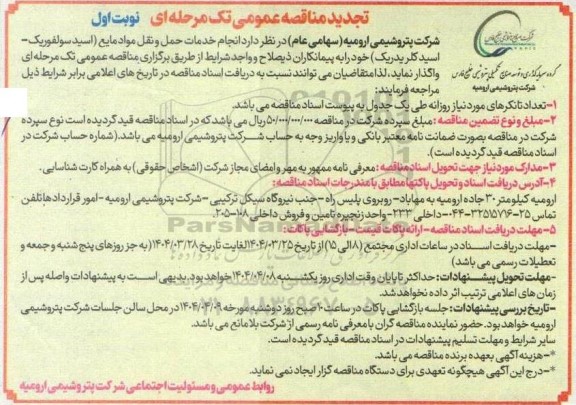 تجدید مناقصه عمومی تک مرحله ای نوبت اول
گروه سرمایه گذاری و توسعه صنایع تکمیلی پتروشیمی خلیج فارس
شرکت پتروشیمی ارومیه
شرکت پتروشیمی ارومیه (سهامی عام) در نظر دارد انجام خدمات حمل و نقل مواد مایع (اسید سولفوریک-
اسید کلریدریک) خود را به پیمانکاران ذیصلاح و واجد شرایط از طریق برگزاری مناقصه عمومی تک مرحله ای
واگذار نماید، لذا متقاضیان می توانند نسبت به دریافت اسناد مناقصه در تاریخ های اعلامی برابر شرایط ذیل
مراجعه فرمایند:
۱-تعداد تانکرهای مورد نیاز روزانه طی یک جدول به پیوست اسناد مناقصه می باشد.
۲-مبلغ و نوع تضمین مناقصه: مبلغ سپرده شرکت در مناقصه ۵۰/۰۰۰/۰۰۰/۰۰۰ ریال می باشد که در اسناد مناقصه قید گردیده است و نوع سپرده
شرکت در مناقصه بصورت ضمانت نامه معتبر بانکی و یا واریز وجه به حساب شرکت پتروشیمی ارومیه می باشد.(شماره حساب شرکت در
اسناد مناقصه قید گردیده است).
۳-مدارک مورد نیاز جهت تحویل اسناد مناقصه: معرفی نامه ممهور به مهر و امضای مجاز شرکت (اشخاص حقوقی) به همراه کارت شناسایی.
۴-آدرس دریافت اسناد و تحویل پاکتها مطابق با مندرجات اسناد مناقصه:
ارومیه کیلومتر ۳۰ جاده ارومیه به مهاباد-روبروی پلیس راه -جنب نیروگاه سیکل ترکیبی -شرکت پتروشیمی ارومیه - امور قراردادها تلفن
تماس ۲۵-۰۴۴۳۲۵۱۵۷۶-داخلی ۲۳۳-واحد زنجیره تامین و فروش داخلی ۱۰۸-۲۰۵.
۵-مهلت دریافت اسناد مناقصه- ارائه پاکات قیمت - بازگشایی پاکات:
-مهلت دریافت اسناد در ساعات اداری مجتمع (۸ الی ۱۵) از تاریخ ۱۴۰۴/۰۳/۲۵ لغایت تاریخ ۱۴۰۴/۰۳/۲۸( به جز روزهای پنج شنبه و جمعه و
تعطیلات رسمی می باشد)
-مهلت تحویل پیشنهادات: حداکثر تا پایان وقت اداری روز یکشنبه ۱۴۰۴/۰۴/۰۸ خواهد بود. بدیهی است به پیشنهادات واصله پس از
زمان های اعلامی ترتیب اثر داده نخواهد شد.
-تاریخ بررسی پیشنهادات: جلسه بازگشایی پاکات در ساعت ۱۰ صبح روز دوشنبه مورخه ۱۴۰۴/۰۴/۰۹ در محل سالن جلسات شرکت پتروشیمی
ارومیه خواهد بود. حضور نماینده مناقصه گران با معرفی نامه رسمی از شرکت بلامانع می باشد.
سایر شرایط و مهلت تسلیم پیشنهادات در اسناد مناقصه قید گردیده است.
*-هزینه آگهی بعهده برنده مناقصه می باشد.
*-درج این آگهی هیچگونه تعهدی برای دستگاه مناقصه گزار ایجاد نمی نماید.
روابط عمومی و مسئولیت اجتماعی شرکت پتروشیمی ارومیه